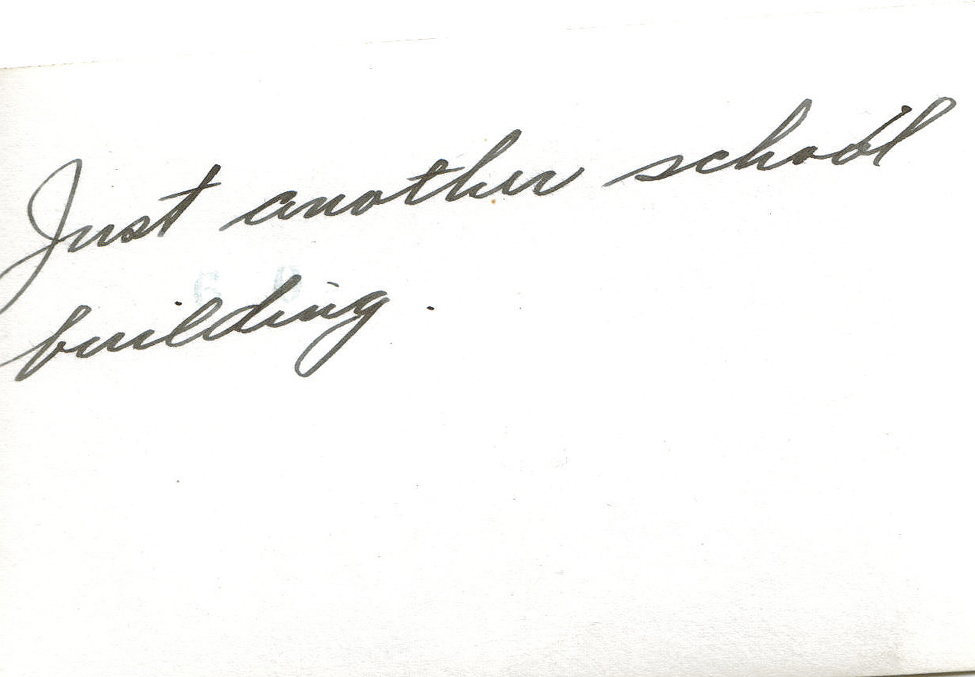 Just another school
building.